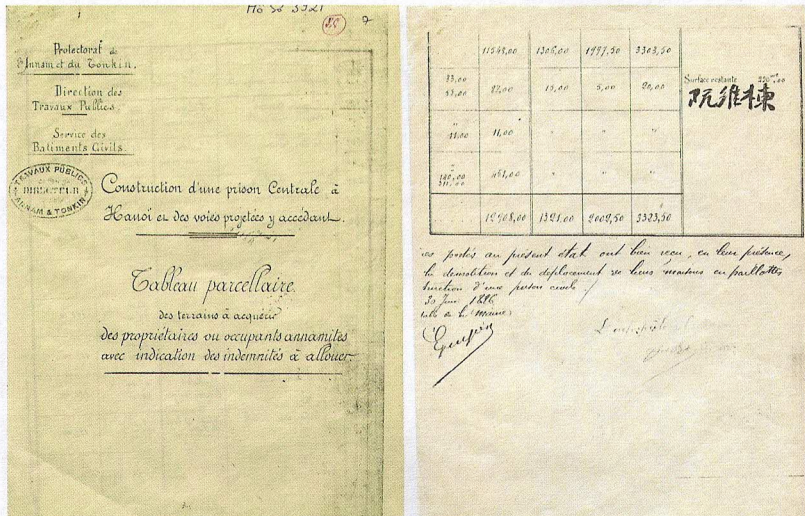 Mo 36 3321
Protectorat de
l'Annam et du Tonkin.
Direction des
Travaux Publics.
Service des
Batiments Civils.
TRAVAUX PUBLICS
DIRECTION
ANNAM & TONKIN
Construction d'une prison Centrale à
Hanoï et des voies projetées y accédant.
Tableau parcellaire
des terrains à acquérir
des propriétaires ou occupants annamites
avec indication des indemnités à allouer
11549,00 1306,00 1997,50 3303,50
33,00
22,00 15,00 5,00 20,00
Surface restante
阮維棟
11,00 11,00 " "
12908,00 1321,00 2002,50 3323,50
portés au présent état ont bien reçu, en leur présence,
la démolition et du déplacement de leurs maisons en paillottes
d'une prison civile
30 Juin 1896